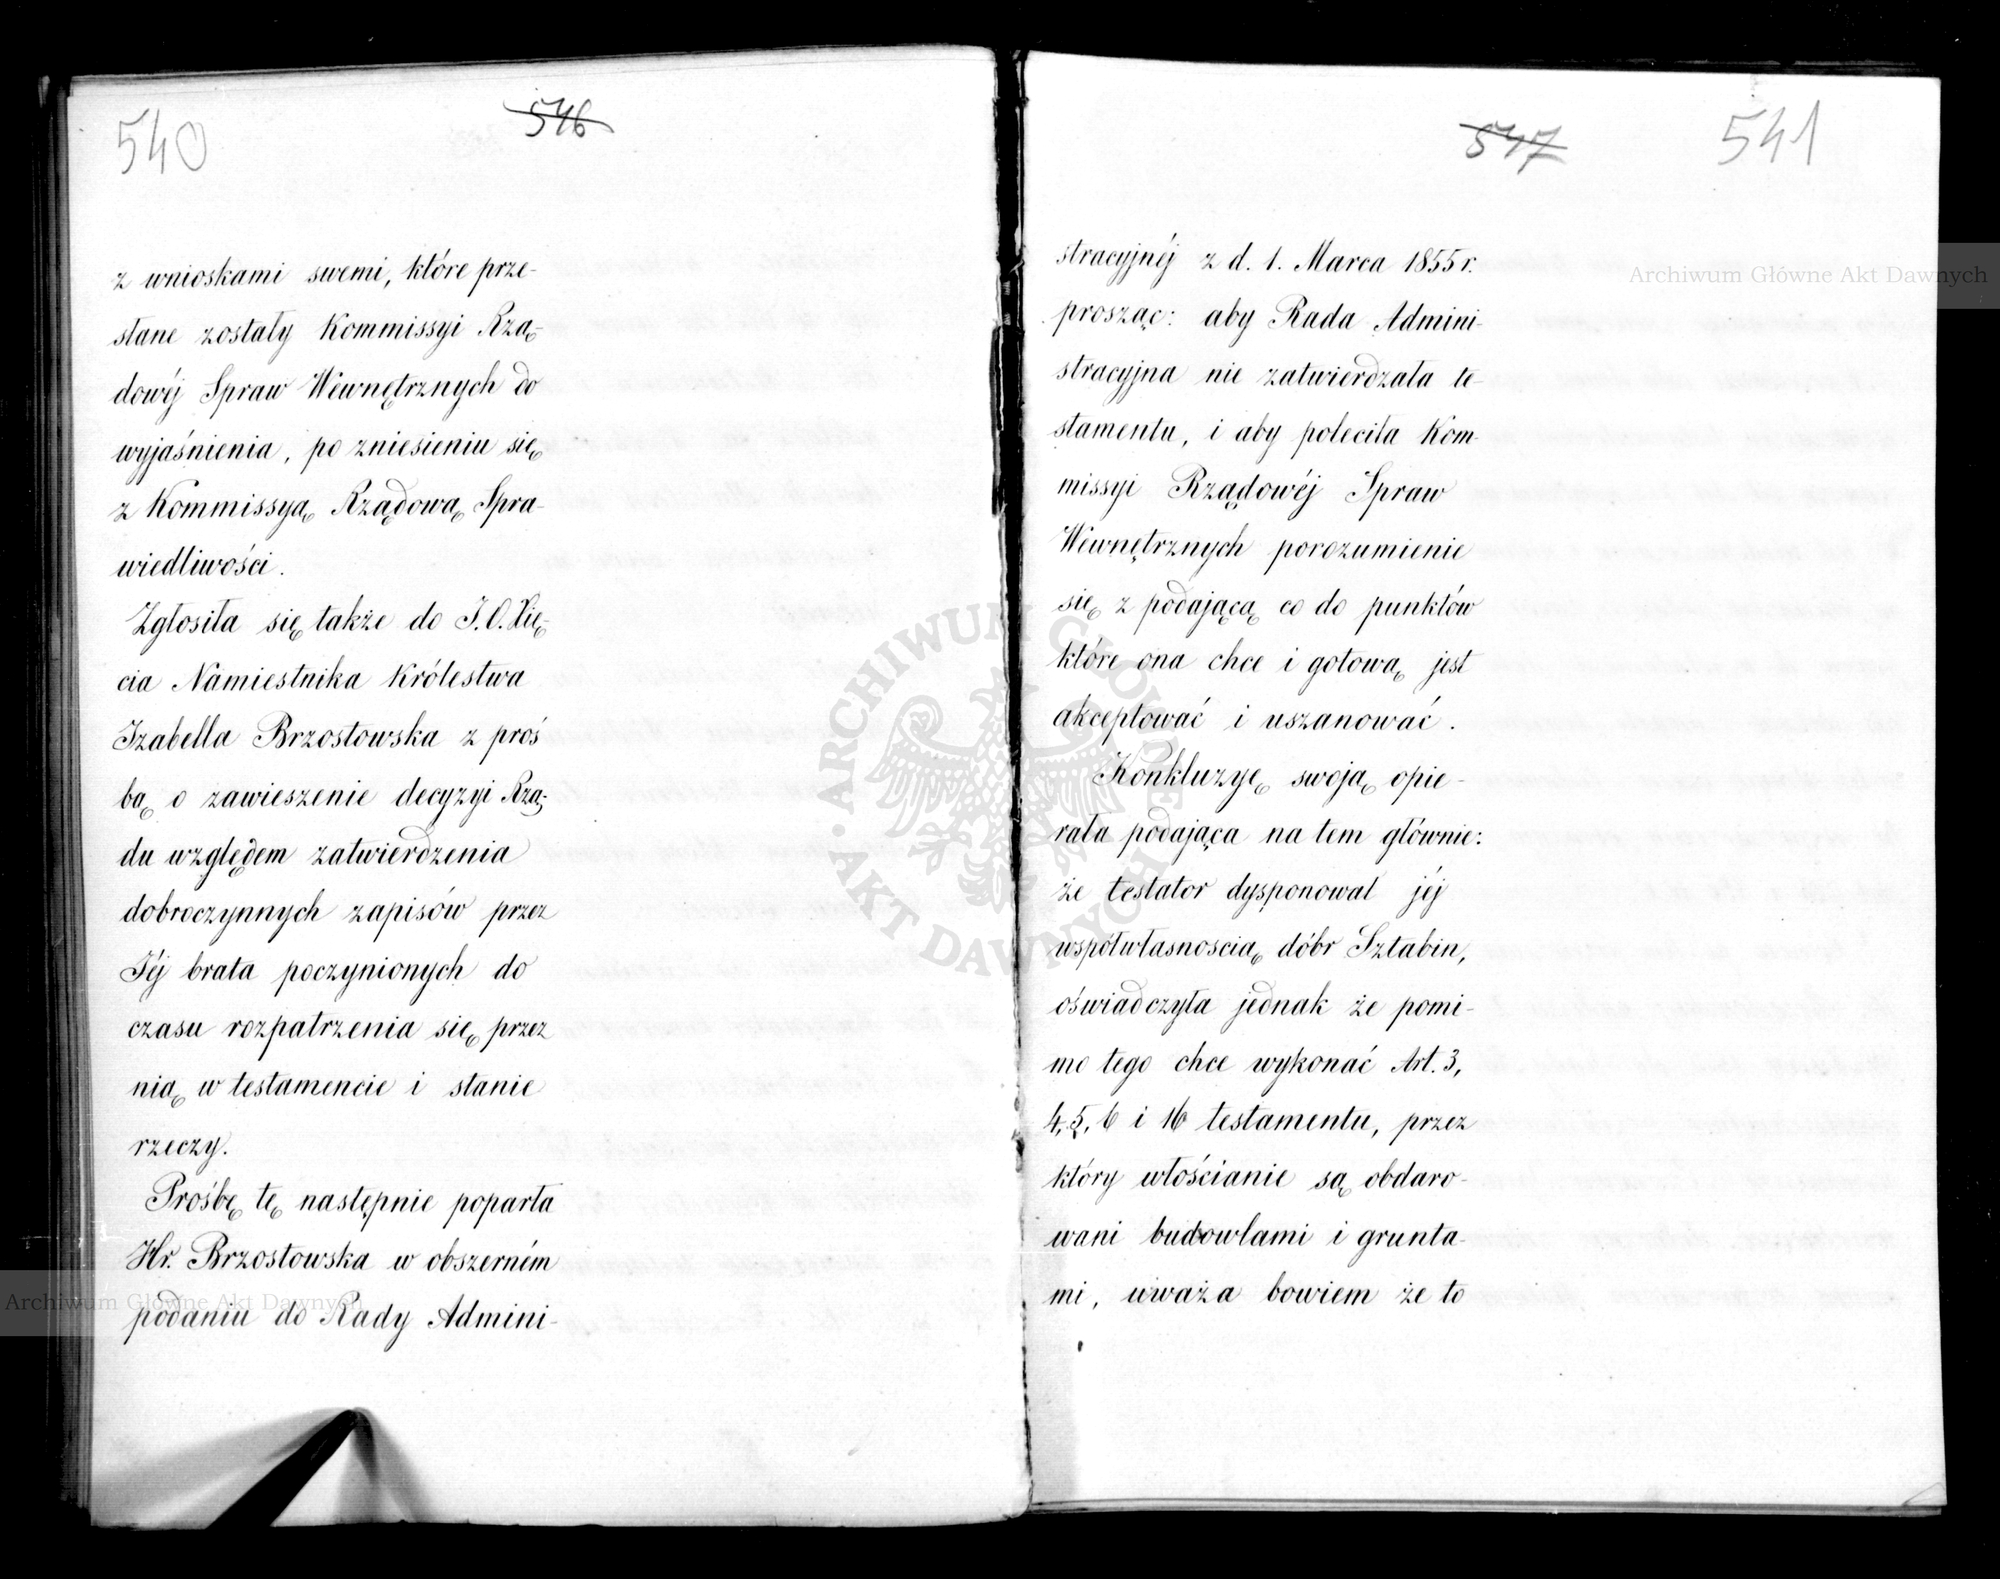 540
546
z wnioskami swemi, które prze-
słane zostały Kommissyi Rzą-
dowéj Spraw Wewnętrznych do
wyjaśnienia, po zniesieniu się
z Kommissyą Rządową Spra-
wiedliwości.
Zgłosiła się także do J.O. Xię-
cia Namiestnika Królestwa
Izabella Brzostowska z proś
bą o zawieszenie decyzyi Rzą-
du względem zatwierdzenia
dobroczynnych zapisów przez
Jéj brata poczynionych do
czasu rozpatrzenia się przez
nią w testamencie i stanie
rzeczy.
Prośbę tę następnie poparła
Hr. Brzostowska w obszerném
podaniu do Rady Admini-
547
541
stracyjnéj z d. 1. Marca 1855 r.
prosząc: aby Rada Admini-
stracyjna nie zatwierdzała te-
stamentu, i aby poleciła Kom-
missyi Rządowéj Spraw
Wewnętrznych porozumienie
się z podającą co do punktów
które ona chce i gotową jest
akceptować i uszanować.
Konkluzyę swoją opie-
rała podająca na tem głównie:
że testator dysponował jéj
współwłasnoscią dóbr Sztabin,
oświadczyła jednak że pomi-
mo tego chce wykonać Art. 3,
4, 5, 6 i 16 testamentu, przez
który włościanie są obdaro-
wani budowlami i grunta-
mi, uważa bowiem że to
Archiwum Główne Akt Dawnych
Archiwum Główne Akt Dawnych
ARCHIWUM GŁÓWNE AKT DAWNYCH